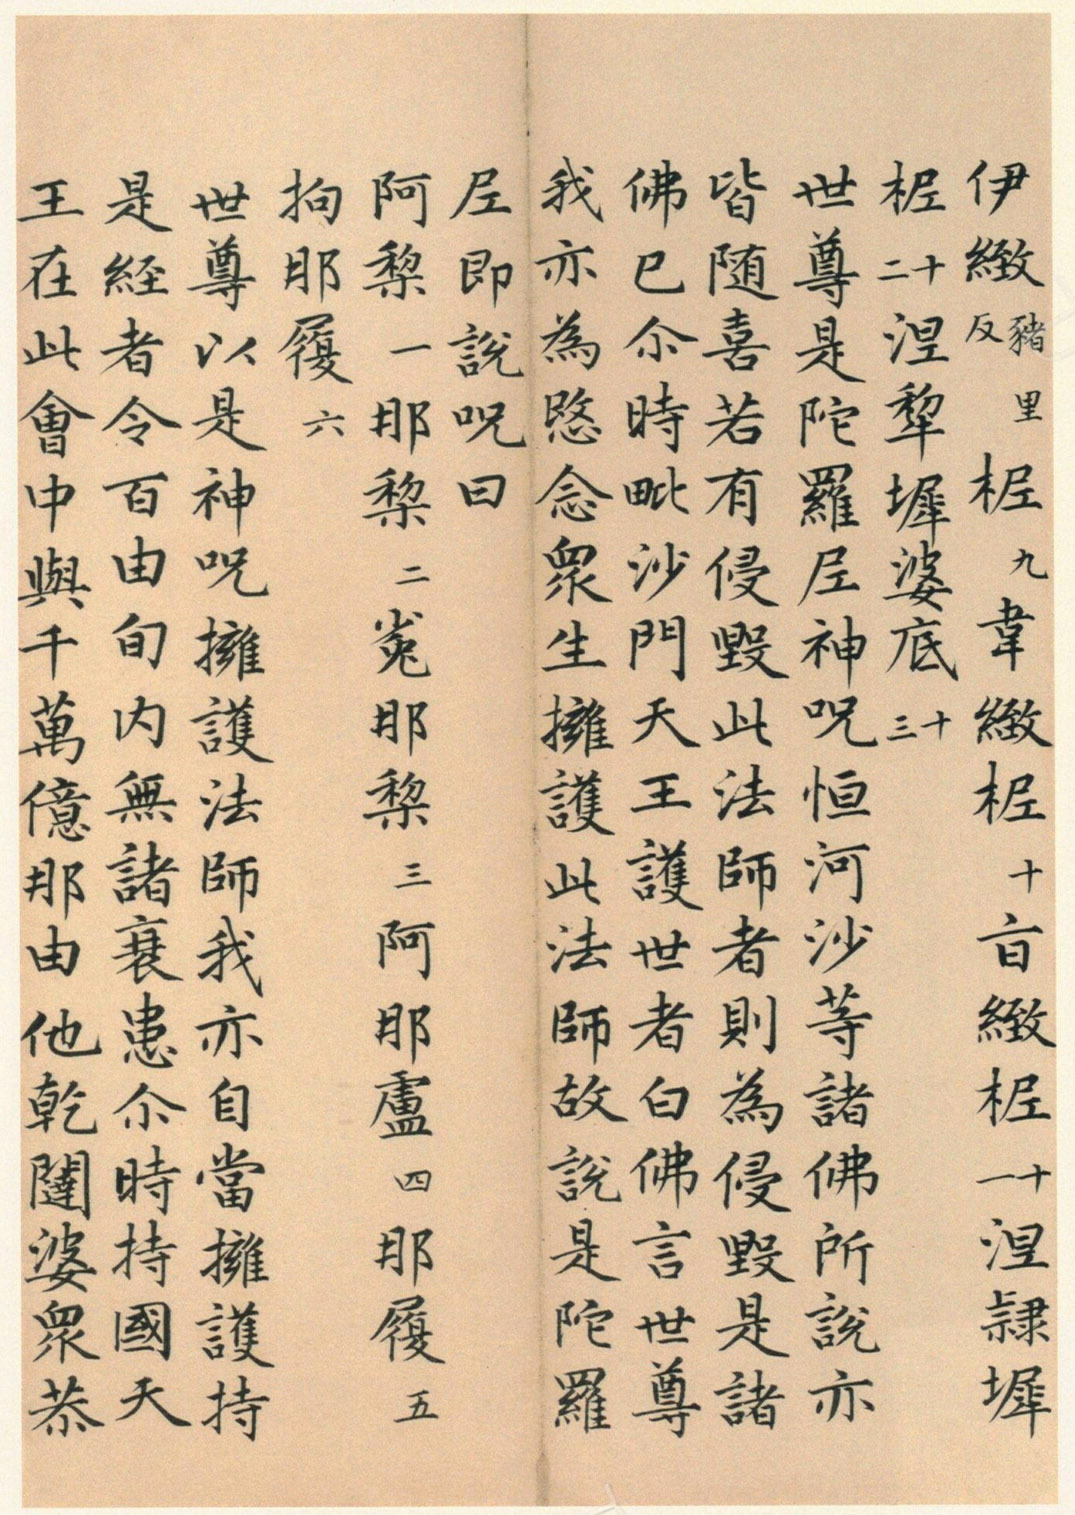 伊緻豬里反柅九韋緻柅十旨緻柅十一涅隷墀
柅十二涅犂墀婆底十三
世尊是陀羅尼神呪恒河沙等諸佛所說亦
皆随喜若有侵毀此法師者則為侵毀是諸
佛已尒時毗沙門天王護世者白佛言世尊
我亦為愍念衆生擁護此法師故說是陀羅
尼即說呪曰
阿棃一那棃二㝹那棃三阿那盧四那履五
拘那履六
世尊以是神呪擁護法師我亦自當擁護持
是經者令百由旬内無諸衰患尒時持國天
王在此會中與千萬億那由他乾闥婆衆恭